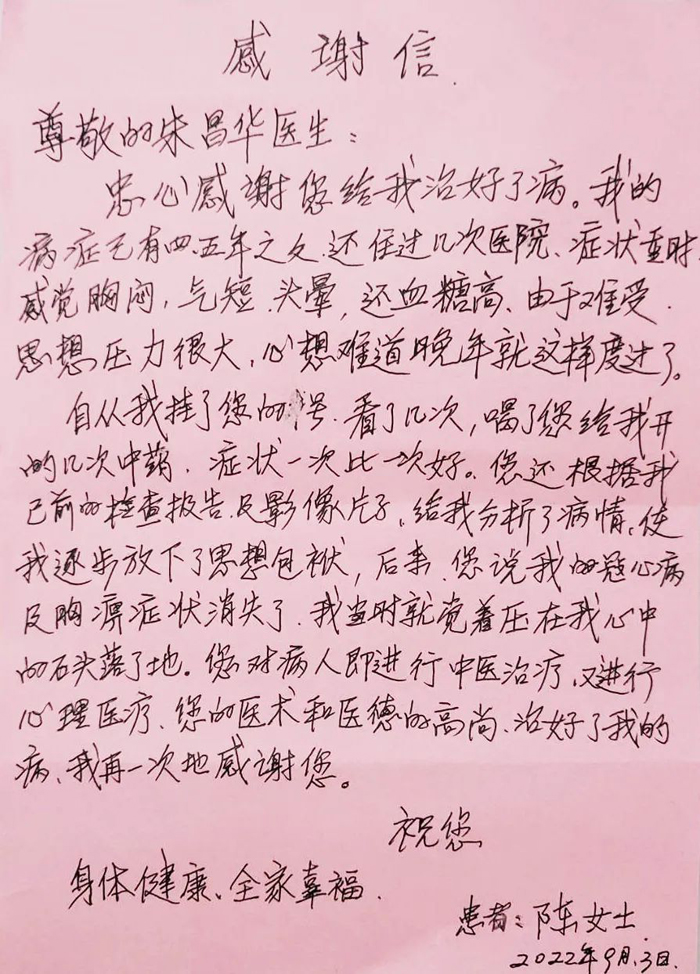 感谢信
尊敬的宋昌华医生：
忠心感谢您给我治好了病。我的
病症已有四.五年之久.还住过几次医院、症状重时
感觉胸闷，气短.头晕，还血糖高、由于难受.
思想压力很大，心想难道晚年就这样度过了。
自从我挂了您的号.看了几次，喝了您给我开
的几次中药.症状一次比一次好。您还根据我
已前的检查报告.及影像片子、给我分析了病情、使
我逐步放下了思想包袱，后来.您说我的冠心病
及胸痹症状消失了.我当时就觉着压在我心中
的石头落了地。您对病人即进行中医治疗、又进行
心理医疗、您的医术和医德的高尚、治好了我的
病、我再一次地感谢您。
祝您
身体健康、全家幸福.
患者：陈女士
2022年9月.3日.